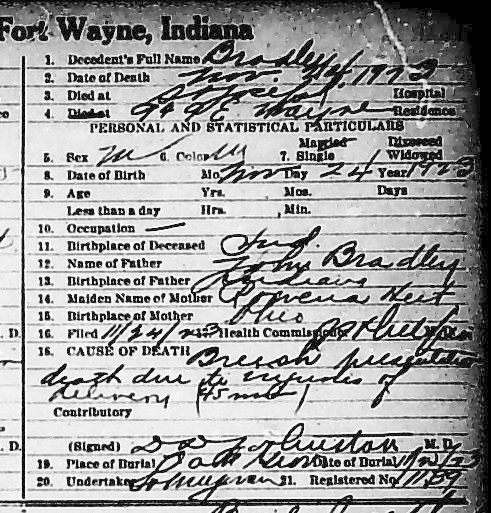 Fort Wayne, Indiana
1. Decedent's Full Name Bradley
2. Date of Death Nov. 24, 1923
3. Died at St Joseph. Hospital
4. Died at Ft Wayne Residence
PERSONAL AND STATISTICAL PARTICULARS
Married Divorced
5. Sex M 6. Color W 7. Single Widowed
8. Date of Birth Mo. Nov Day 24 Year 1923
9. Age Yrs. Mos. Days
Less than a day Hrs. Min.
10. Occupation —
11. Birthplace of Deceased Ind.
12. Name of Father John Bradley
13. Birthplace of Father Indiana
14. Maiden Name of Mother Rowena
15. Birthplace of Mother Ohio
D. 16. Filed 11/24/23 Health Commissioner
18. CAUSE OF DEATH Breech presentation
death due to injuries of
delivery (45 min)
Contributory
D. (Signed) M. D.
19. Place of Burial Date of Burial 11/2/23
20. Undertaker 21. Registered No.